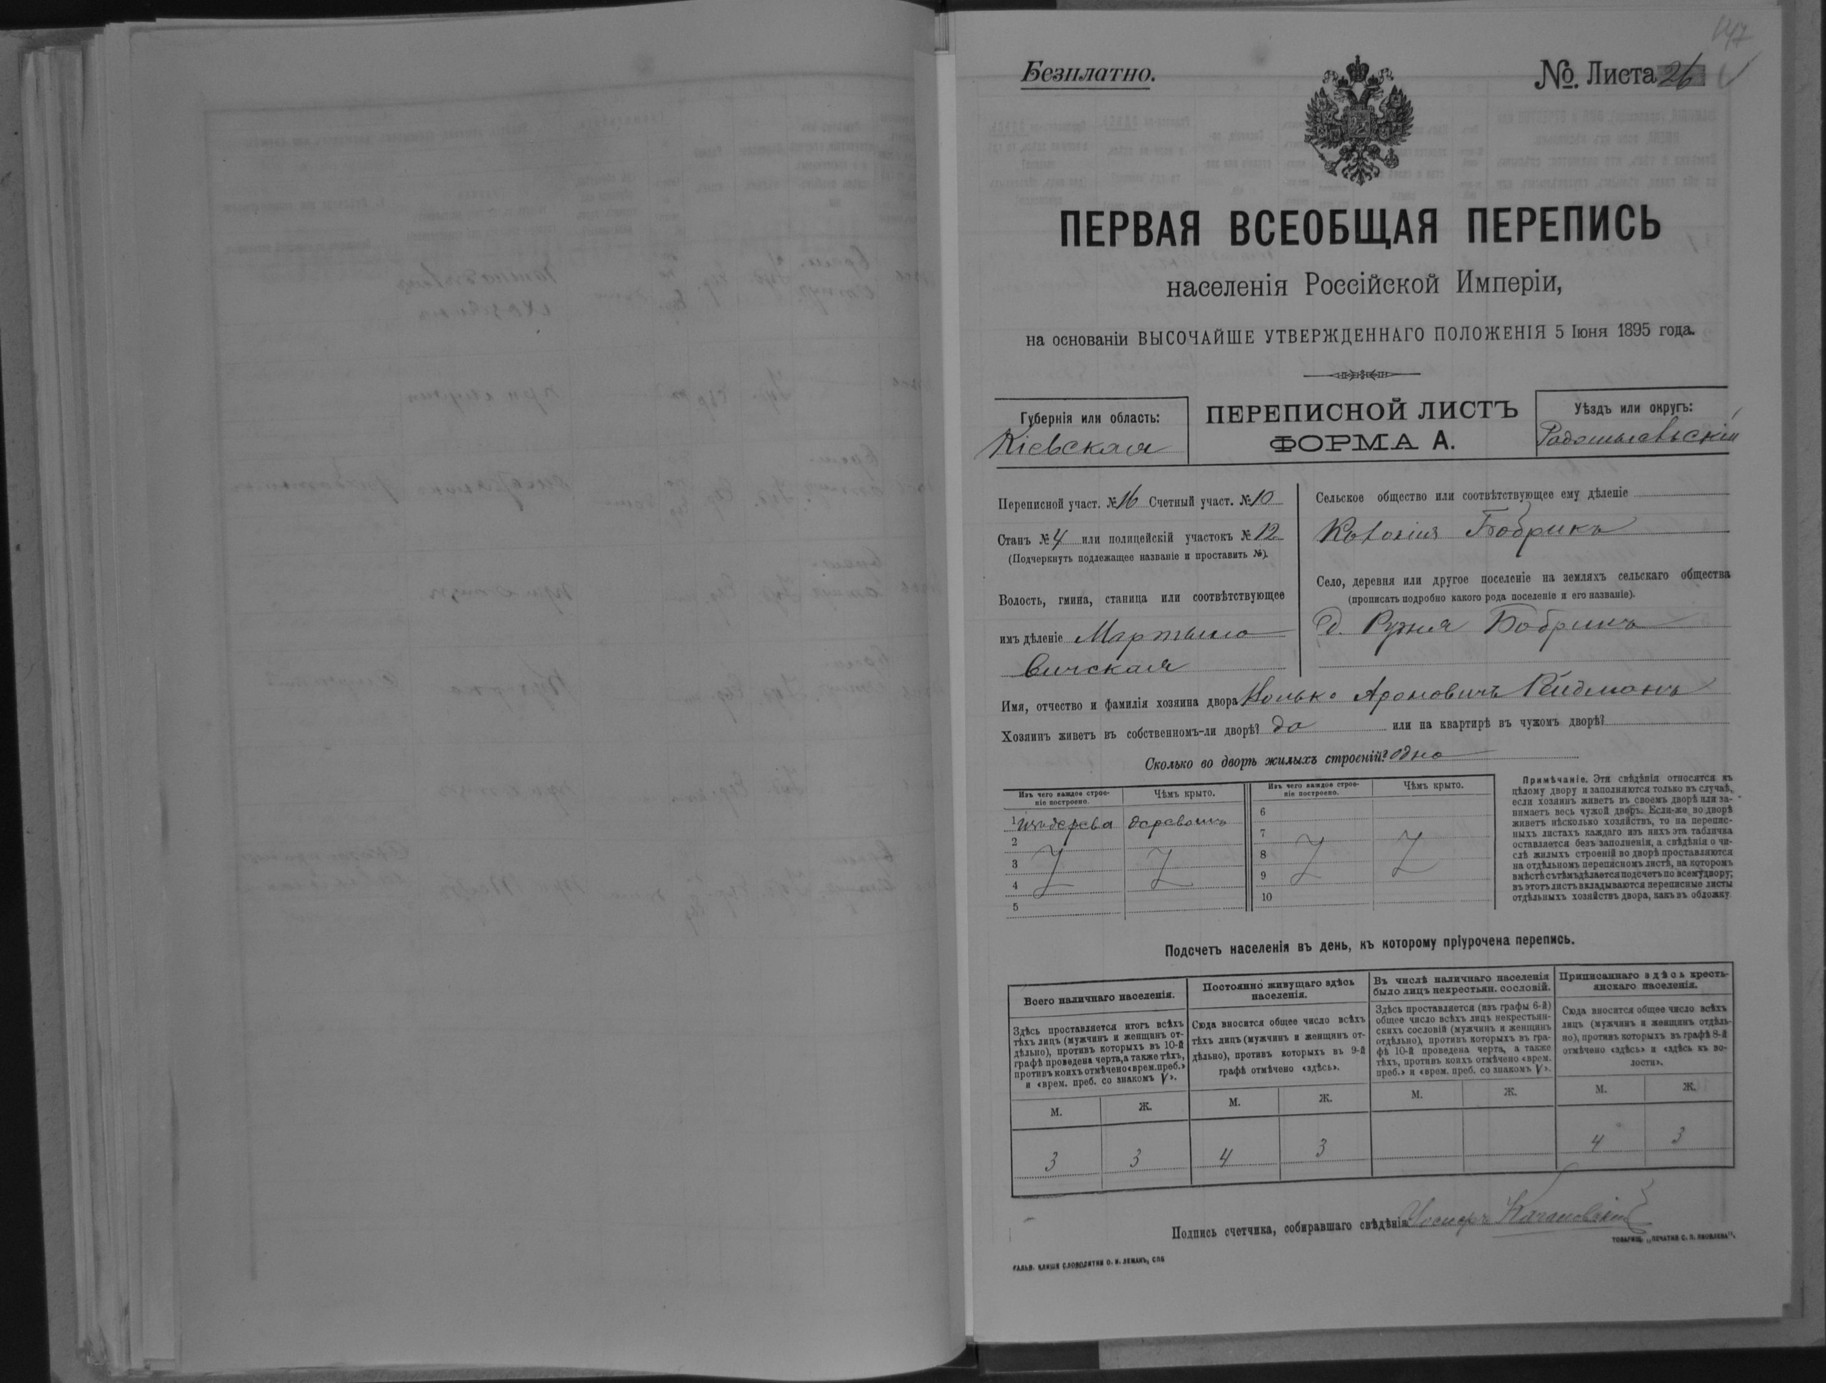 147
Безплатно.
№. Листа 26
ПЕРВАЯ ВСЕОБЩАЯ ПЕРЕПИСЬ
населенія Россійской Имперіи,
на основаніи ВЫСОЧАЙШЕ УТВЕРЖДЕННАГО ПОЛОЖЕНІЯ 5 Іюня 1895 года.
Губернія или область:
Кіевская
ПЕРЕПИСНОЙ ЛИСТЪ
ФОРМА А.
Уѣздъ или округъ:
Радомысльскій
Переписной участ. № 16 Счетный участ. № 10
Станъ № 4 или полицейскій участокъ № 12
(Подчеркнуть подлежащее названіе и проставить №).
Волость, гмина, станица или соотвѣтствующее
имъ дѣленіе Мартыно
вичская
Сельское общество или соотвѣтствующее ему дѣленіе
Колонія Бобрикъ
Село, деревня или другое поселеніе на земляхъ сельскаго общества
(прописать подробно какого рода поселеніе и его названіе).
д. Рудня Бобрикъ
Имя, отчество и фамилія хозяина двора Ароновичъ Рейдманъ
Хозяинъ живетъ въ собственномъ-ли дворѣ? да или на квартирѣ въ чужомъ дворѣ?
Сколько во дворѣ жилыхъ строеній? одно
Изъ чего каждое строе-
ніе построено.
Чѣмъ крыто.
Изъ чего каждое строе-
ніе построено.
Чѣмъ крыто.
1 изъ дерева
2
3
4
5
6
7
8
9
10
Примѣчаніе. Эти свѣдѣнія относятся къ
цѣлому двору и заполняются только въ случаѣ,
если хозяинъ живетъ въ своемъ дворѣ или за-
нимаетъ весь чужой дворъ. Если-же во дворѣ
живетъ нѣсколько хозяйствъ, то на перепис-
ныхъ листахъ каждаго изъ нихъ эта табличка
оставляется безъ заполненія, а свѣдѣнія о чи-
слѣ жилыхъ строеній во дворѣ проставляются
на отдѣльномъ переписномъ листѣ, на которомъ
вмѣстѣ съ тѣмъ дѣлается подсчетъ по всему двору;
въ этотъ листъ вкладываются переписные листы
отдѣльныхъ хозяйствъ двора, какъ въ обложку.
Подсчетъ населенія въ день, къ которому пріурочена перепись.
Всего наличнаго населенія.
Здѣсь проставляется итогъ всѣхъ
тѣхъ лицъ (мужчинъ и женщинъ от-
дѣльно), противъ которыхъ въ 10-й
графѣ проведена черта, а также тѣхъ,
противъ коихъ отмѣчено «врем. преб.»
и «врем. преб. со знакомъ V».
Постоянно живущаго здѣсь
населенія.
Сюда вносится общее число всѣхъ
тѣхъ лицъ (мужчинъ и женщинъ от-
дѣльно), противъ которыхъ въ 9-й
графѣ отмѣчено «здѣсь».
Въ числѣ наличнаго населенія
было лицъ некрестьян. сословій.
Здѣсь проставляется (изъ графы 6-й)
общее число всѣхъ лицъ некрестьян-
скихъ сословій (мужчинъ и женщинъ
отдѣльно), противъ которыхъ въ гра-
фѣ 10-й проведена черта, а также
тѣхъ, противъ коихъ отмѣчено «врем.
преб.» и «врем. преб. со знакомъ V».
Приписаннаго здѣсь кресть-
янскаго населенія.
Сюда вносится общее число всѣхъ
лицъ (мужчинъ и женщинъ отдѣль-
но), противъ которыхъ въ графѣ 8-й
отмѣчено «здѣсь» и «здѣсь въ во-
лости».
М. Ж. М. Ж. М. Ж. М. Ж.
3 3 4 3 4 3
Подпись счетчика, собиравшаго свѣдѣнія Іосифъ Качановскій
ГАЛЬВ. КЛИШЕ СЛОВОЛИТНИ О. И. ЛЕМАНЪ, СПБ
ТОВАРИЩ. „ПЕЧАТНЯ С. П. ЯКОВЛЕВА".